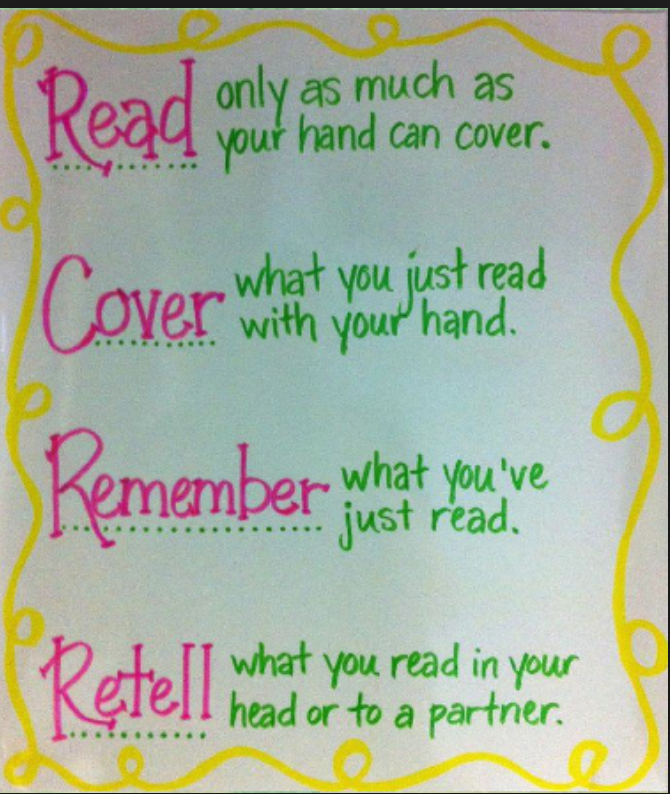 Read only as much as
your hand can cover.
Cover what you just read
with your hand.
Remember what you've
just read.
Retell what you read in your
head or to a partner.